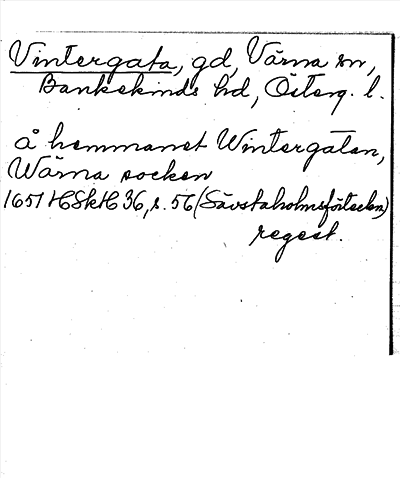 Vintergata, gd, Värna sn,
Bankekinds hd, Österg. l.
å hemmanet Wintergatan,
Wärna socken
1651 HSkH 36, s. 56 (Sävstaholmsförteckn)
regest.